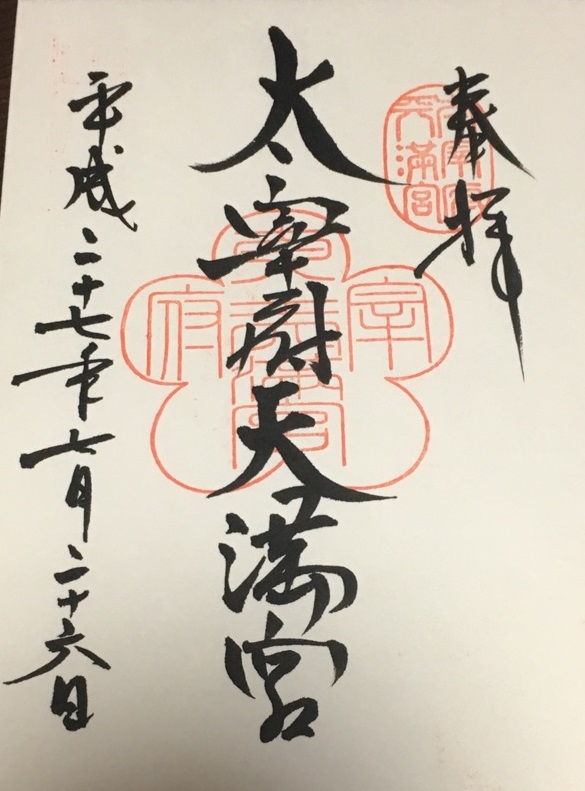 奉拝
太宰府天満宮
平成二十七年七月二十六日
天満宮
宰
府